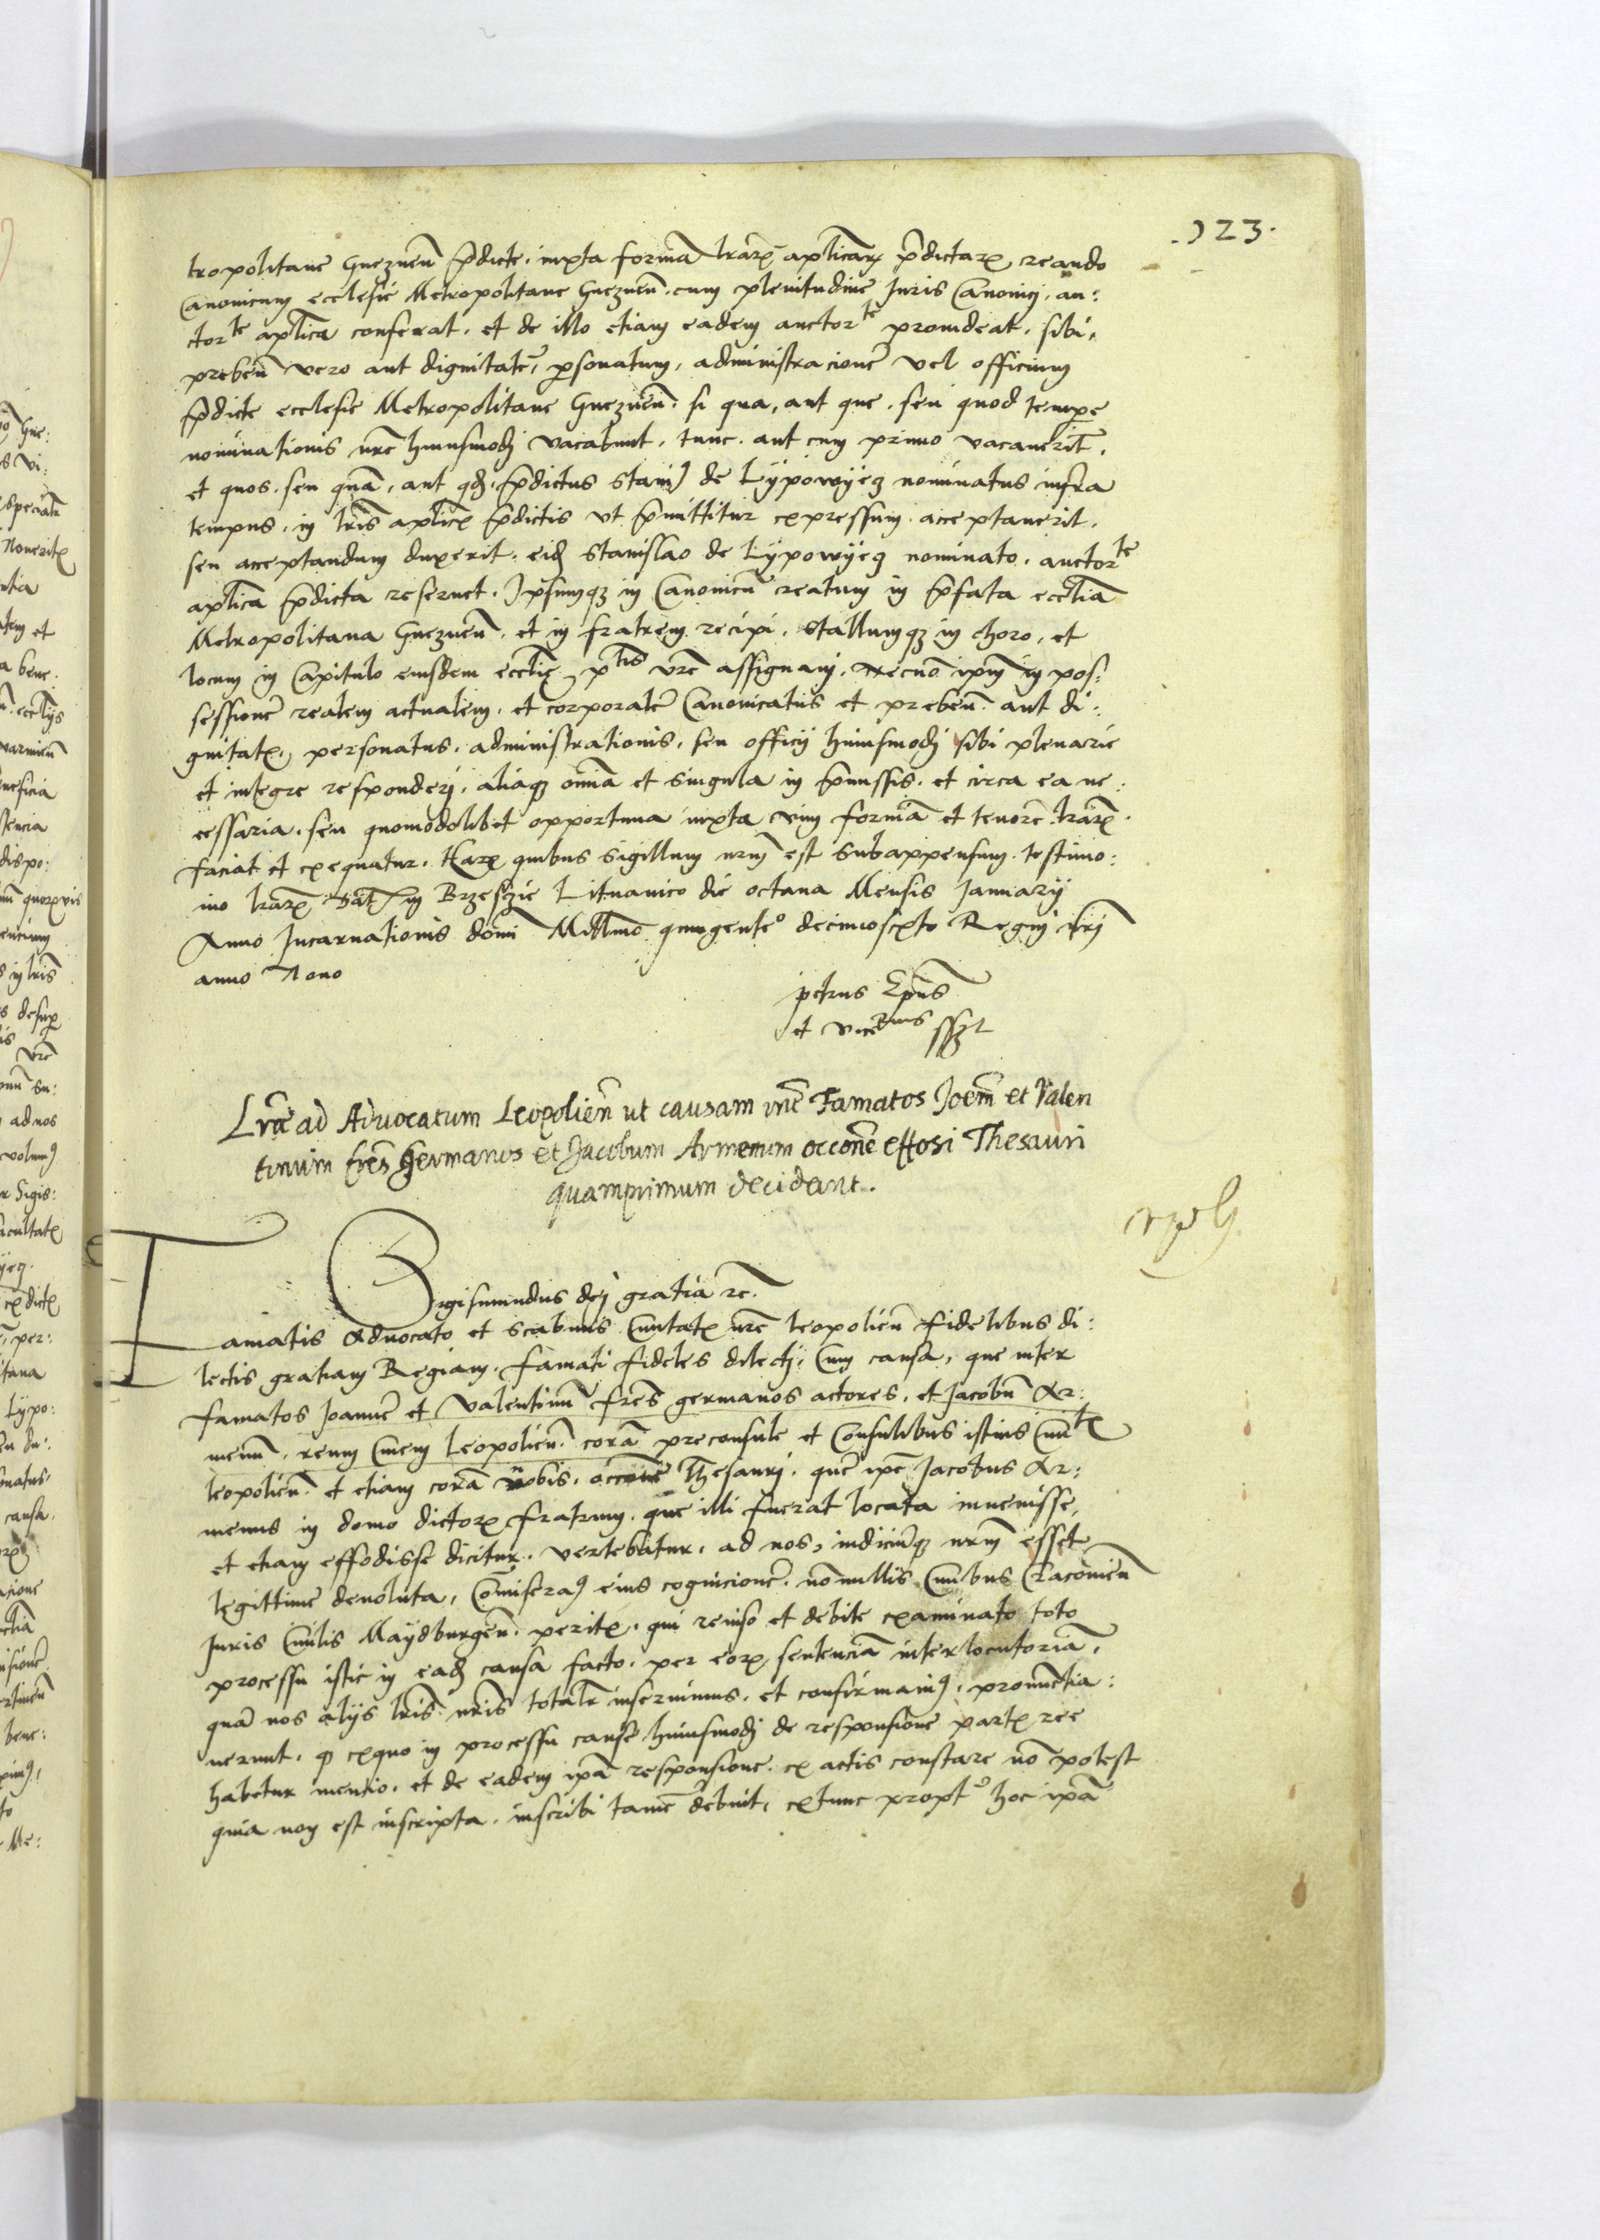 .123.
tropolitane Gneznen̄ p̄dicte. iuxta formā lrar̄ aplicar̄ p̄dictar̄ creando
Canonicum ecclesie Metropolitane Gneznen̄. cum plenitudine Iuris Canonicj. au:
ctorte aplica conferat. et de illo etiam eadem auctorte prouideat. sibi.
preben̄ vero aut dignitatē, personatum, administracionē vel officium
p̄dicte ecclesie Metropolitane Gneznen̄. si qua, aut que. seu quod tempe
nominationis nr̄e huiusmodj vacabunt. tunc. aut cum primo vacauerīt.
et quos. seu quā, aut qd. p̄dictus Stanis de Lypowyecz nominatus infra
tempus. in lris aplicis p̄dictis vt p̄mittitur expressum acceptauerit.
seu acceptandum duxerit. eid Stanislao de Lypowyecz nominato. auctorte
aplica p̄dicta reseruet. Ipsumqȝ in Canonicū creatum in p̄fata eccliā
Metropolitana Gneznen̄. et in fratrem recipi. Stallumqȝ in choro, et
locum in Capitulo eiusdem ecclie ptis vr̄e assignarj. Necnō ipm̄ in pos:
sessionē realem actualem. et corporalē Canonicatus et preben̄. aut di:
gnitatis. personatus. administrationis. seu officij huiusmodj sibi plenarie
et integre responderj. aliaqȝ omiā et singula in p̄missis. et circa ea ne:
cessaria. seu quomodolibet opportuna iuxta vim formā et tenorē lrar̄.
faciat et exequatur. Harȝ quibus Sigillum nrm̄ est Subappensum. testimo:
nio lrar̄. Dat in Brzesczie Lituanico die octaua Mensis Ianuarij
Anno Incarnationis domī Millmō quingentō decimosexto Regnj nrj
anno Nono
petrus Ep̄us
et vicerius sszt
Lr̄e ad Aduocatum Leopolien̄ ut causam intē Famatos Joem̄ et Valen
tinum fres̄ Germanos et Jacobum Armenum occonē effosi Thesauri
quamprimum decidant.
Sigismundus dej gratia rc.
Famatis Aduocato et Scabinis Ciuitatis nr̄e leopolien̄ fidelibus di:
lectis gratiam Regiam. famati fideles dilectj. Cum causa, que inter
famatos Ioannē et Valentinū fres̄ germanos actores. et Iacobū Ar:
menū. reum Ciuem leopolien̄. corā preconsule et Consulibus istius Ciuitis
leopolien̄. et etiam corā nobis. occonē Thesaurj. quē ipē Jacobus Ar:
menus in domo dictorȝ fratrum. que illi fuerat locata inuenisse,
et etiam effodisse dicitur. vertebatur. ad nos, iudiciūqȝ nrm̄ esset
legittime deuoluta, Cōmiseram eius cognicionē. nōnullis Ciuibus Cracouien̄
Iuris Ciuilis Maydburgen̄. peritis. qui reuiso et debite examinato toto
processu istic in ead causa facto. per eorȝ sentenciā interlocutoriā.
quā nos alijs lris̄ nris̄ totalr inseruimus. et confirmauim. pronuncia:
uerunt. qȝ exquo in processu cause huiusmodj de responsione partis ree
habetur mentio. et de eadem ipā responsione. ex actis constare nō potest
quia non est inscripta. inscribi tamē debuit, extunc propt hoc ipā